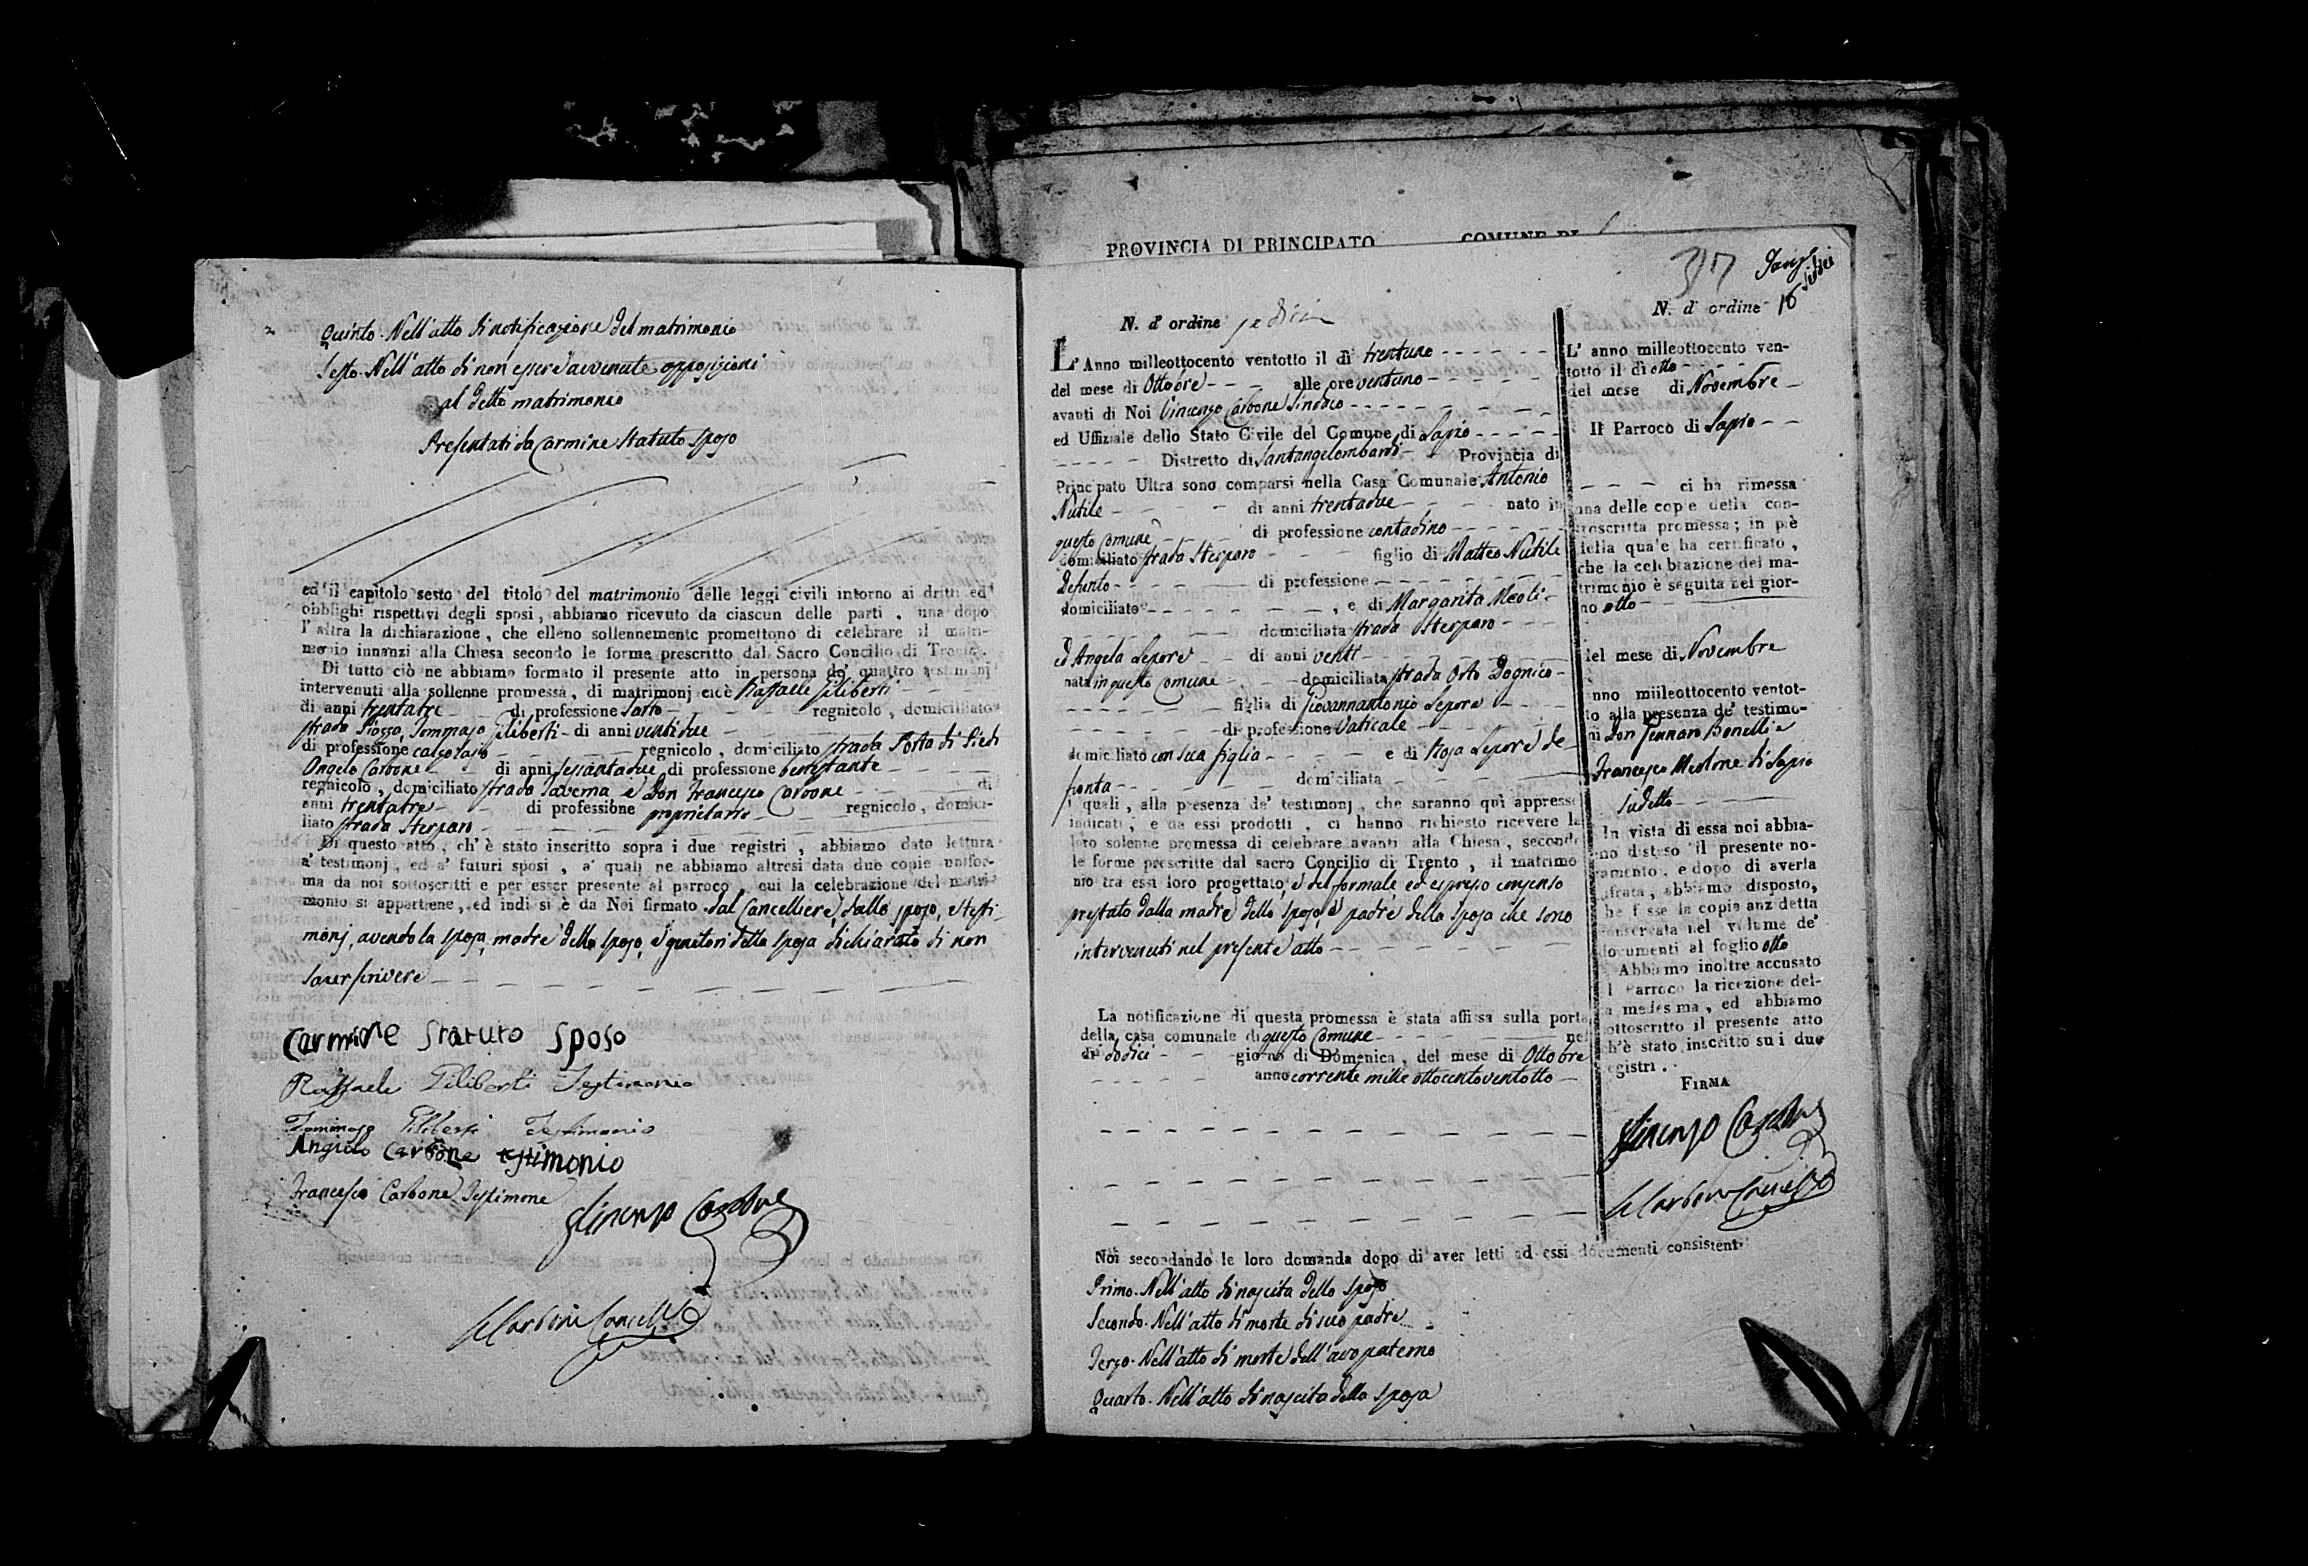 Quinto. Nell'atto di notificazione del matrimonio
Sesto. Nell'atto di non essere avvenute opposizioni
al detto matrimonio
Presentati da Carmine Statuto sposo
ed il capitolo sesto del titolo del matrimonio delle leggi civili intorno ai dritti ed
obblighi rispettivi degli sposi, abbiamo ricevuto da ciascun delle parti, una dopo
l'altra la dichiarazione, che elleno sollennemente promettono di celebrare il matri-
monio innanzi alla Chiesa secondo le forme prescritto dal Sacro Concilio di Trento.
Di tutto ciò ne abbiamo formato il presente atto in persona de' quattro testimonj
intervenuti alla sollenne promessa, di matrimonj cioè Raffaele Ziliberti
di anni trentatre di professione sarto regnicolo, domiciliato
strada Piazza, Tommaso Ziliberti di anni ventidue
di professione calzolajo regnicolo, domiciliato strada Porta di Piedi
Angelo Carbone di anni sessantadue di professione benestante
regnicolo, domiciliato strada Taverna e Don Francesco Carbone di
anni trentatre di professione proprietario regnicolo, domici-
liato strada Sterparo
Di questo atto, ch'è stato inscritto sopra i due registri, abbiamo dato lettura
a' testimonj, ed a' futuri sposi, a' quali ne abbiamo altresì data due copie unifor-
ma da noi sottoscritti e per esser presente al parroco, cui la celebrazione del matri-
monio si appartiene, ed indi si è da Noi firmato dal Cancelliere, dallo sposo, e testi-
monj, avendo la sposa, madre dello sposo, e genitori della sposa dichiarato di non
saper scrivere
Carmine Statuto sposo
Raffaele Ziliberti Testimonio
Tommaso Ziliberti Testimonio
Angiolo Carbone testimonio
Francesco Carbone Testimone
Vincenzo Carbone
Carbone Cancell
PROVINCIA DI PRINCIPATO COMUNE DI
317
N. d'ordine sedici
L'Anno milleottocento ventotto il dì trentuno
del mese di Ottobre alle ore ventuno
avanti di Noi Vincenzo Carbone Sindaco
ed Uffiziale dello Stato Civile del Comune di Lapio
Distretto di Santangelombardi Provincia di
Principato Ultra sono comparsi nella Casa Comunale Antonio
Nutile di anni trentadue nato in
questo Comune di professione contadino
domiciliato strada Sterparo figlio di Matteo Nutile
Defunto di professione
domiciliato , e di Margarita Meoli
domiciliata strada Sterparo
ed Angela Lepore di anni venti
nata in questo Comune domiciliata strada Orto Dognico
figlia di Giovannantonio Lepore
di professione Vaticale
domiciliato con sua figlia e di Rosa Lepore de-
fonta domiciliata
i quali, alla presenza de' testimonj, che saranno quì appresso
indicati, e da essi prodotti, ci hanno richiesto ricevere la
loro solenne promessa di celebrare avanti alla Chiesa, secondo
le forme prescritte dal sacro Concilio di Trento, il matrimo
nio tra essi loro progettato, e del formale ed espresso consenso
prestato dalla madre dello sposo, e padre della sposa che sono
intervenuti nel presente atto
La notificazione di questa promessa è stata affissa sulla porta
della casa comunale di questo Comune nel
dì dodici giorno di Domenica, del mese di Ottobre
anno corrente mille ottocentoventotto
Noi secondando le loro domanda dopo di aver letti ad essi documenti consistenti
Primo. Nell'atto di nascita dello sposo
Secondo. Nell'atto di morte di suo padre
Terzo. Nell'atto di morte dell'avo paterno
Quarto. Nell'atto di nascita della sposa
N. d'ordine 16
L'anno milleottocento ven-
totto il dì otto
del mese di Novembre
Il Parroco di Lapio
ci ha rimessa
una delle copie della con-
troscritta promessa; in piè
della quale ha certificato,
che la celebrazione del ma-
trimonio è seguita nel gior-
no otto
del mese di Novembre
anno milleottocento ventot-
to alla presenza de' testimo-
nj Don Gennaro Bonelli e
Francesco Medone di Lapio
sudetto
In vista di essa noi abbia-
mo disteso il presente no-
tamento, e dopo di averla
cifrata, abbiamo disposto,
che fosse la copia anzidetta
conservata nel volume de'
documenti al foglio otto
Abbiamo inoltre accusato
al Parroco la ricezione del-
la medesima, ed abbiamo
sottoscritto il presente atto
ch'è stato inscritto su i due
registri.
FIRMA
Vincenzo Carbone
Carbone Cancell